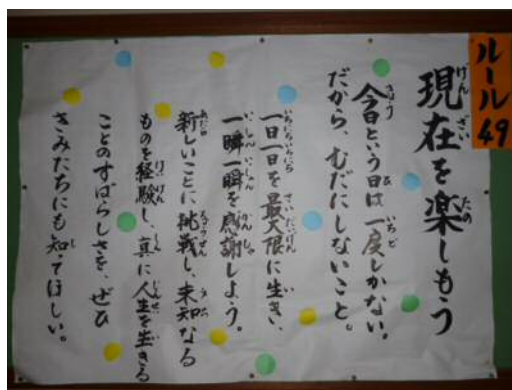 ルール49
現在を楽しもう
今日という日は一度しかない。
だから、むだにしないこと。
一日一日を最大限に生き、
一瞬一瞬を感謝しよう。
新しいことに挑戦し、未知なる
ものを経験し、真に人生を生きる
ことのすばらしさを、ぜひ
きみたちにも知ってほしい。